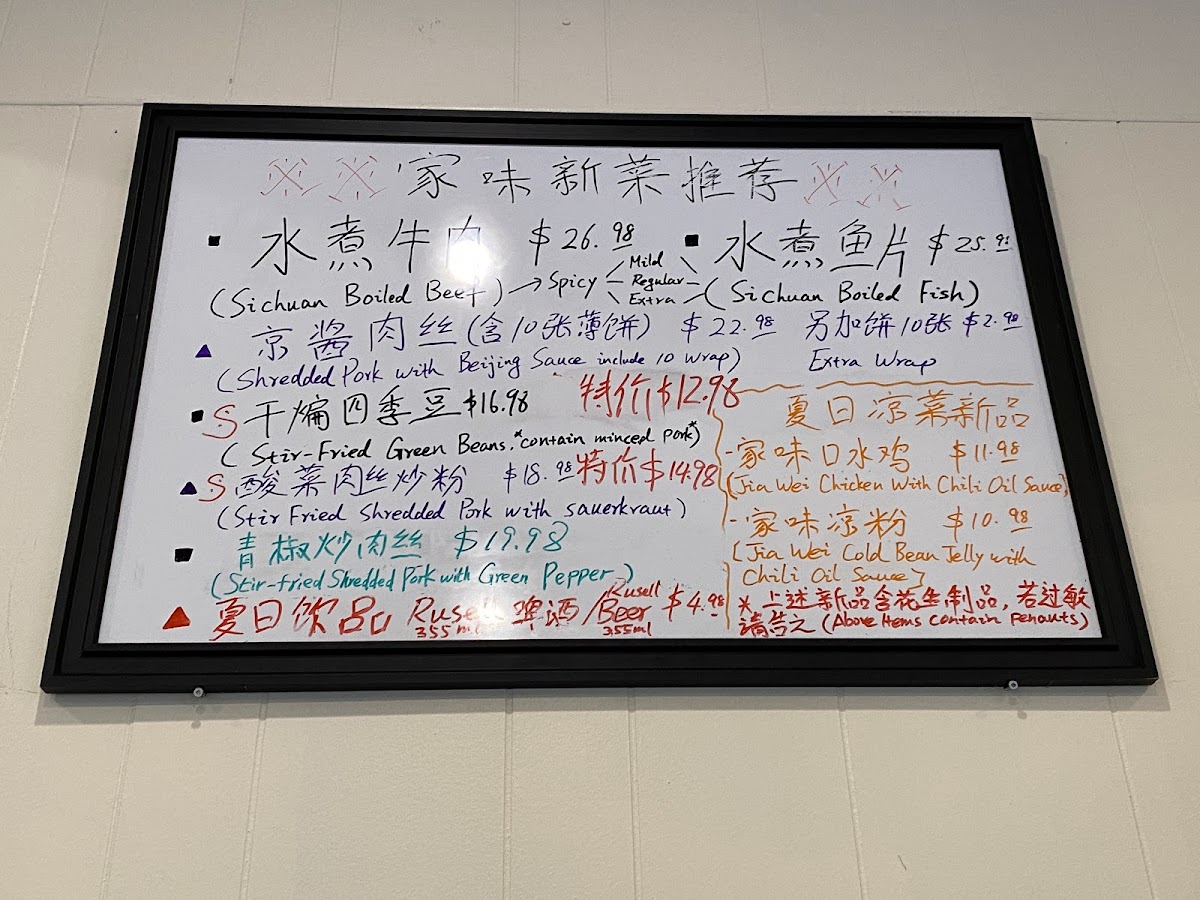 ※ ※ 家味新菜推荐 ※ ※
▪ 水煮牛肉 $26.98 ▪ 水煮鱼片 $25.98
(Sichuan Boiled Beef) → Spicy Mild Regular Extra (Sichuan Boiled Fish)
▲ 京酱肉丝(含10张薄饼) $22.98 另加饼10张 $2.98
(Shredded Pork with Beijing Sauce include 10 wrap) Extra Wrap
▪ S 干煸四季豆 $16.98 特价$12.98
(Stir-Fried Green Beans. *contain minced pork*)
▲ S 酸菜肉丝炒粉 $18.98 特价$14.98
(Stir Fried Shredded Pork with sauerkraut)
▪ 青椒炒肉丝 $19.98
(Stir-fried Shredded Pork with Green Pepper)
▲ 夏日饮品 Rusell 啤酒/Rusell Beer $4.98
355ml 355ml
夏日凉菜新品
- 家味口水鸡 $11.98
[Jia Wei Chicken With Chili Oil Sauce]
- 家味凉粉 $10.98
[Jia Wei Cold Bean Jelly with
Chili Oil Sauce]
※ 上述新品含花生制品, 若过敏
请告之 (Above Items contain penauts)